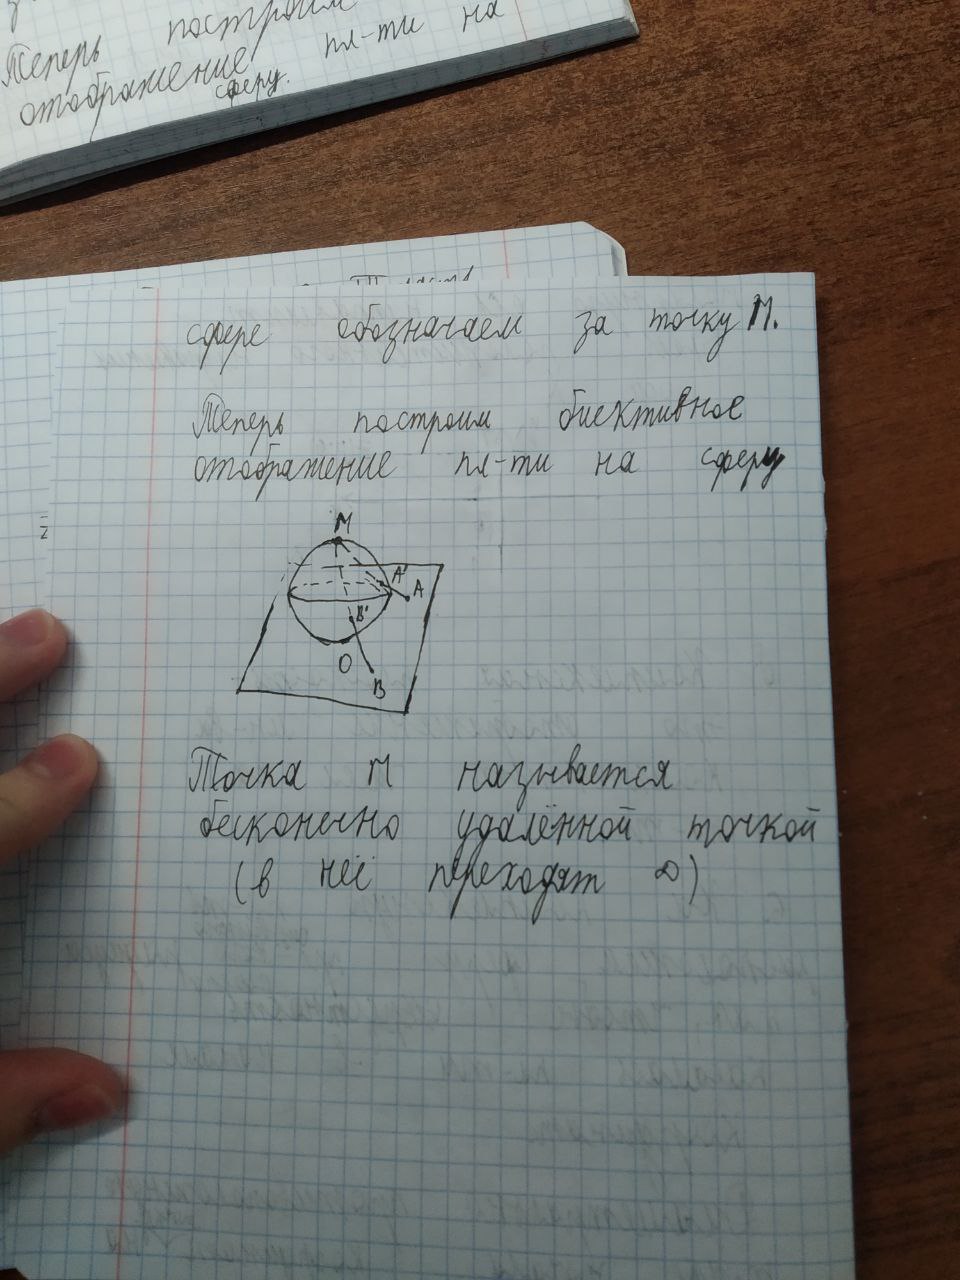 Теперь построим
отображение пл-ти на
сферу.
сфере обозначаем за точку М.
Теперь построим биективное
отображение пл-ти на сферу
М
А'
А
В'
О
В
Точка М называется
бесконечно удалённой точкой
(в неё переходят ∞)